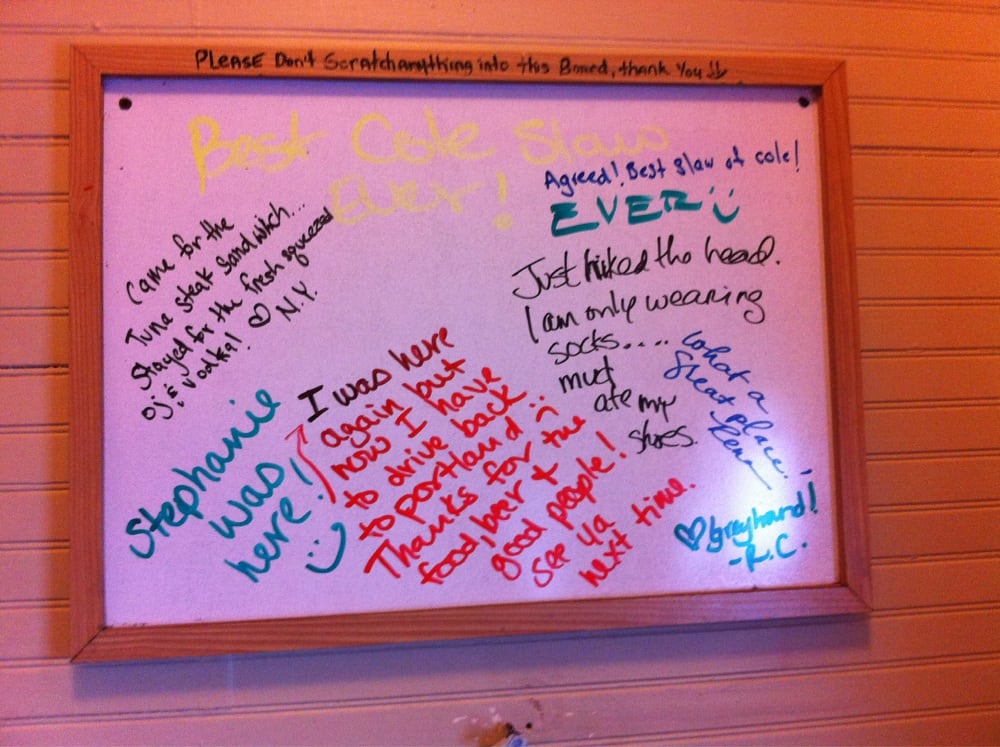 PLEASE Don't Scratch anything into this Board, thank You
Best Cole Slaw
Ever!
Agreed! Best Slaw of cole!
EVER
Came for the
Tuna steak Sandwitch...
Stayed for the fresh squeezed
oj & vodka! ♡ N.Y.
Just hiked the head.
I am only wearing
socks....
mud
ate my
shoes.
What a
great place!
Stephanie
was
here!
I was here
again but
now I have
to drive back
to portland
Thanks for the
food, beer &
good people!
See ya
next time.
♡ greyhand!
-R.C.